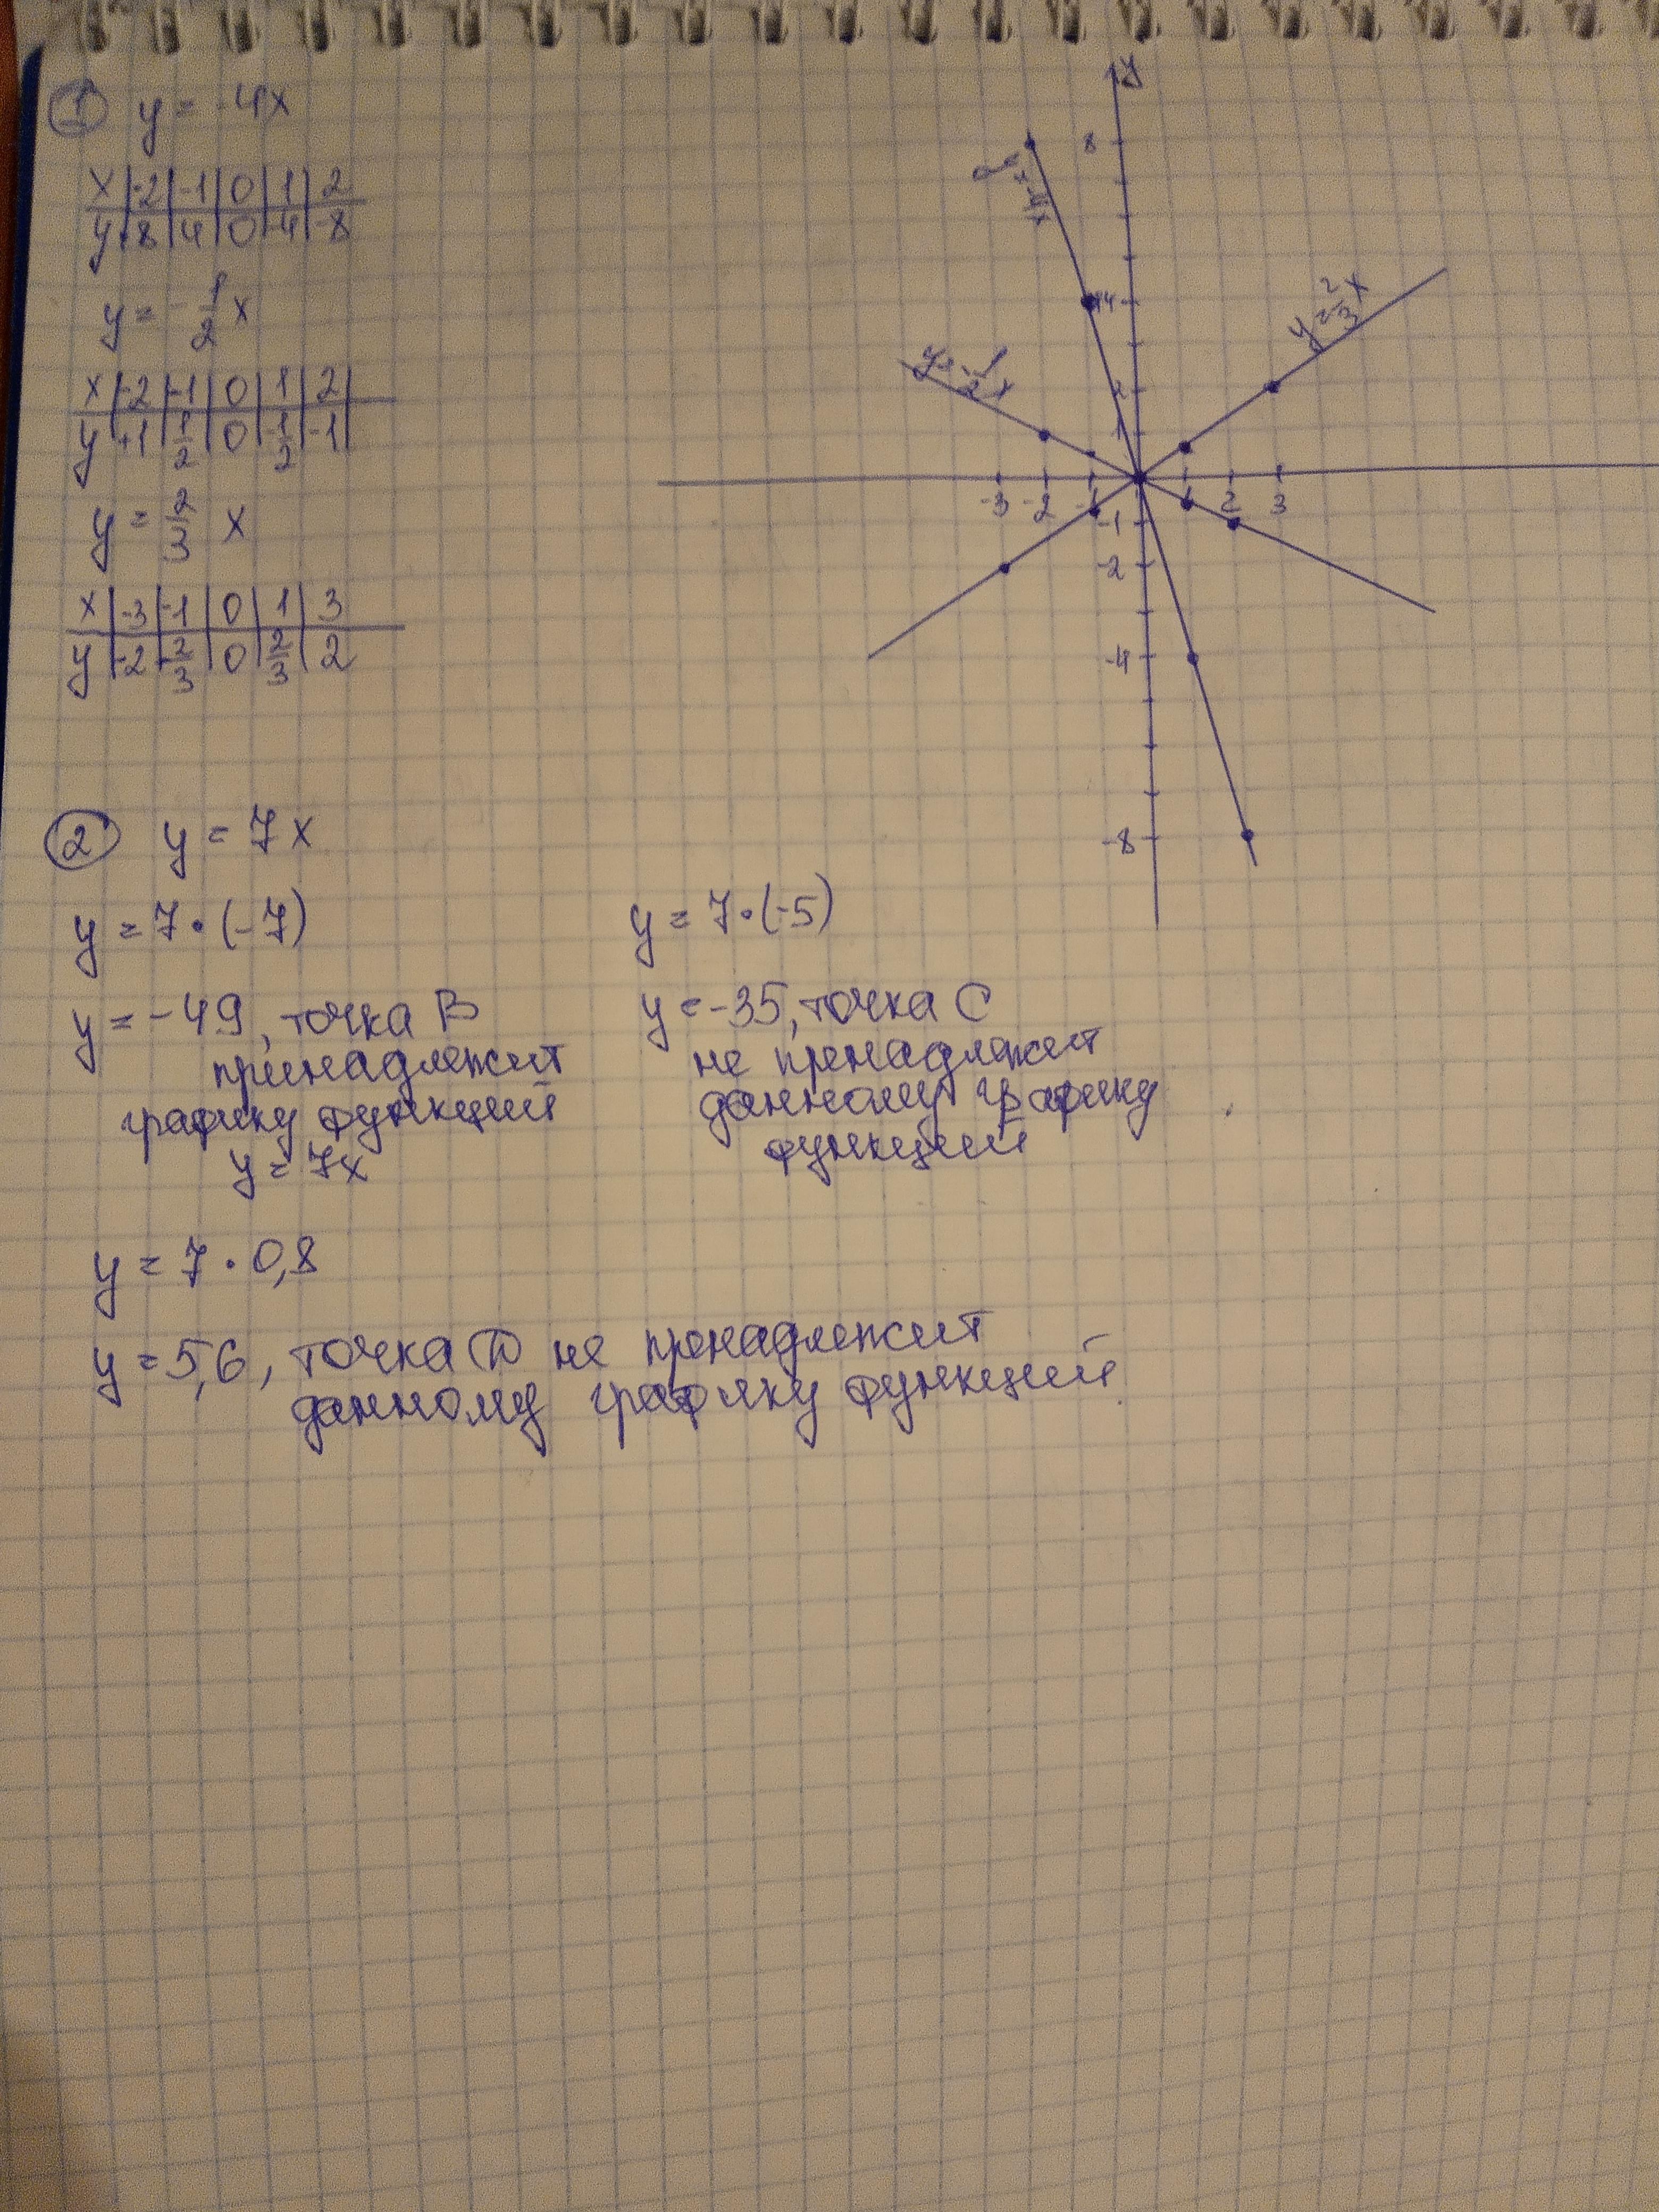 1 y = -4x
x | -2 | -1 | 0 | 1 | 2
y | 8 | 4 | 0 | -4 | -8
y = - 1/2 x
x | -2 | -1 | 0 | 1 | 2
y | +1 | 1/2 | 0 | -1/2 | -1
y = 2/3 x
x | -3 | -1 | 0 | 1 | 3
y | -2 | -2/3 | 0 | 2/3 | 2
y
8
y = -4x
4
y = 2/3 x
y = -1/2 x
2
1
-3 -2 -1 1 2 3
-1
-2
-4
-8
2 y = 7x
y = 7 · (-7)
y = -49, точка B
принадлежит
графику функций
y = 7x
y = 7 · (-5)
y = -35, точка C
не пренадлежит
данному графику
функций
y = 7 · 0,8
y = 5,6, точка D не пренадлежит
данному графику функций